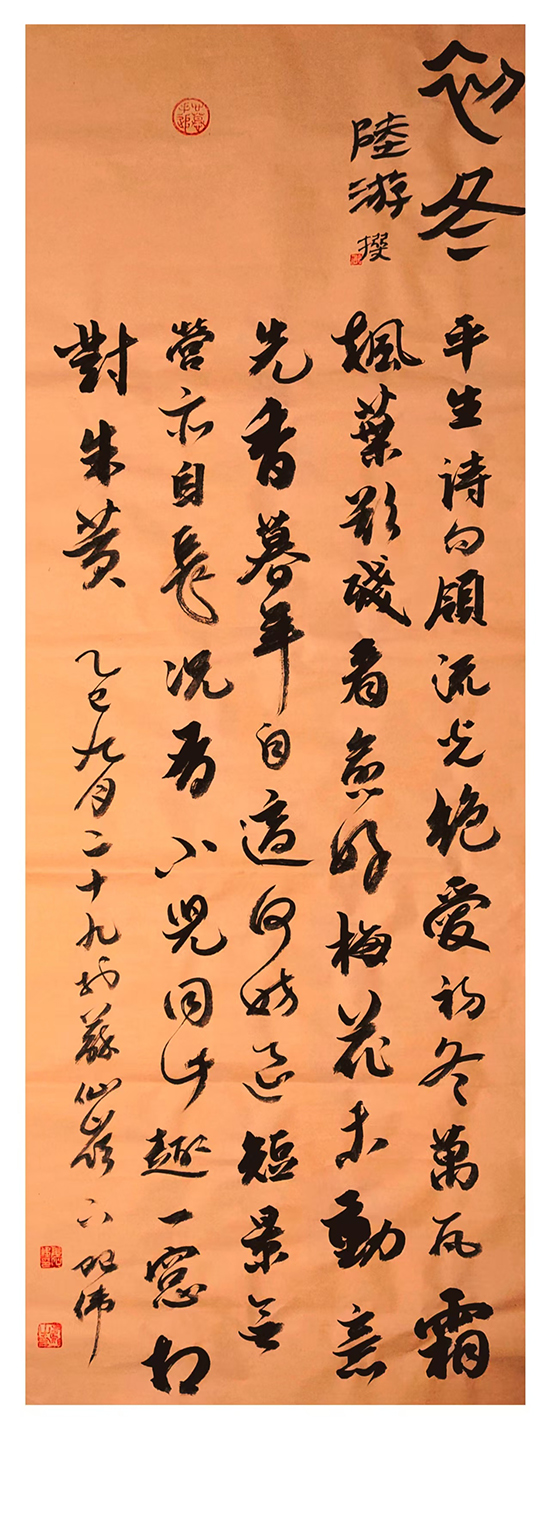 初冬
陸游撰
平生詩句領流光絶愛初冬萬瓦霜
楓葉欲殘看愈好梅花未動意
先香暮年自適何妨退短景無
營亦自長況有小兒同此趣一窓相
對朱黃 乙巳九月二十九於蘇仙嶺下